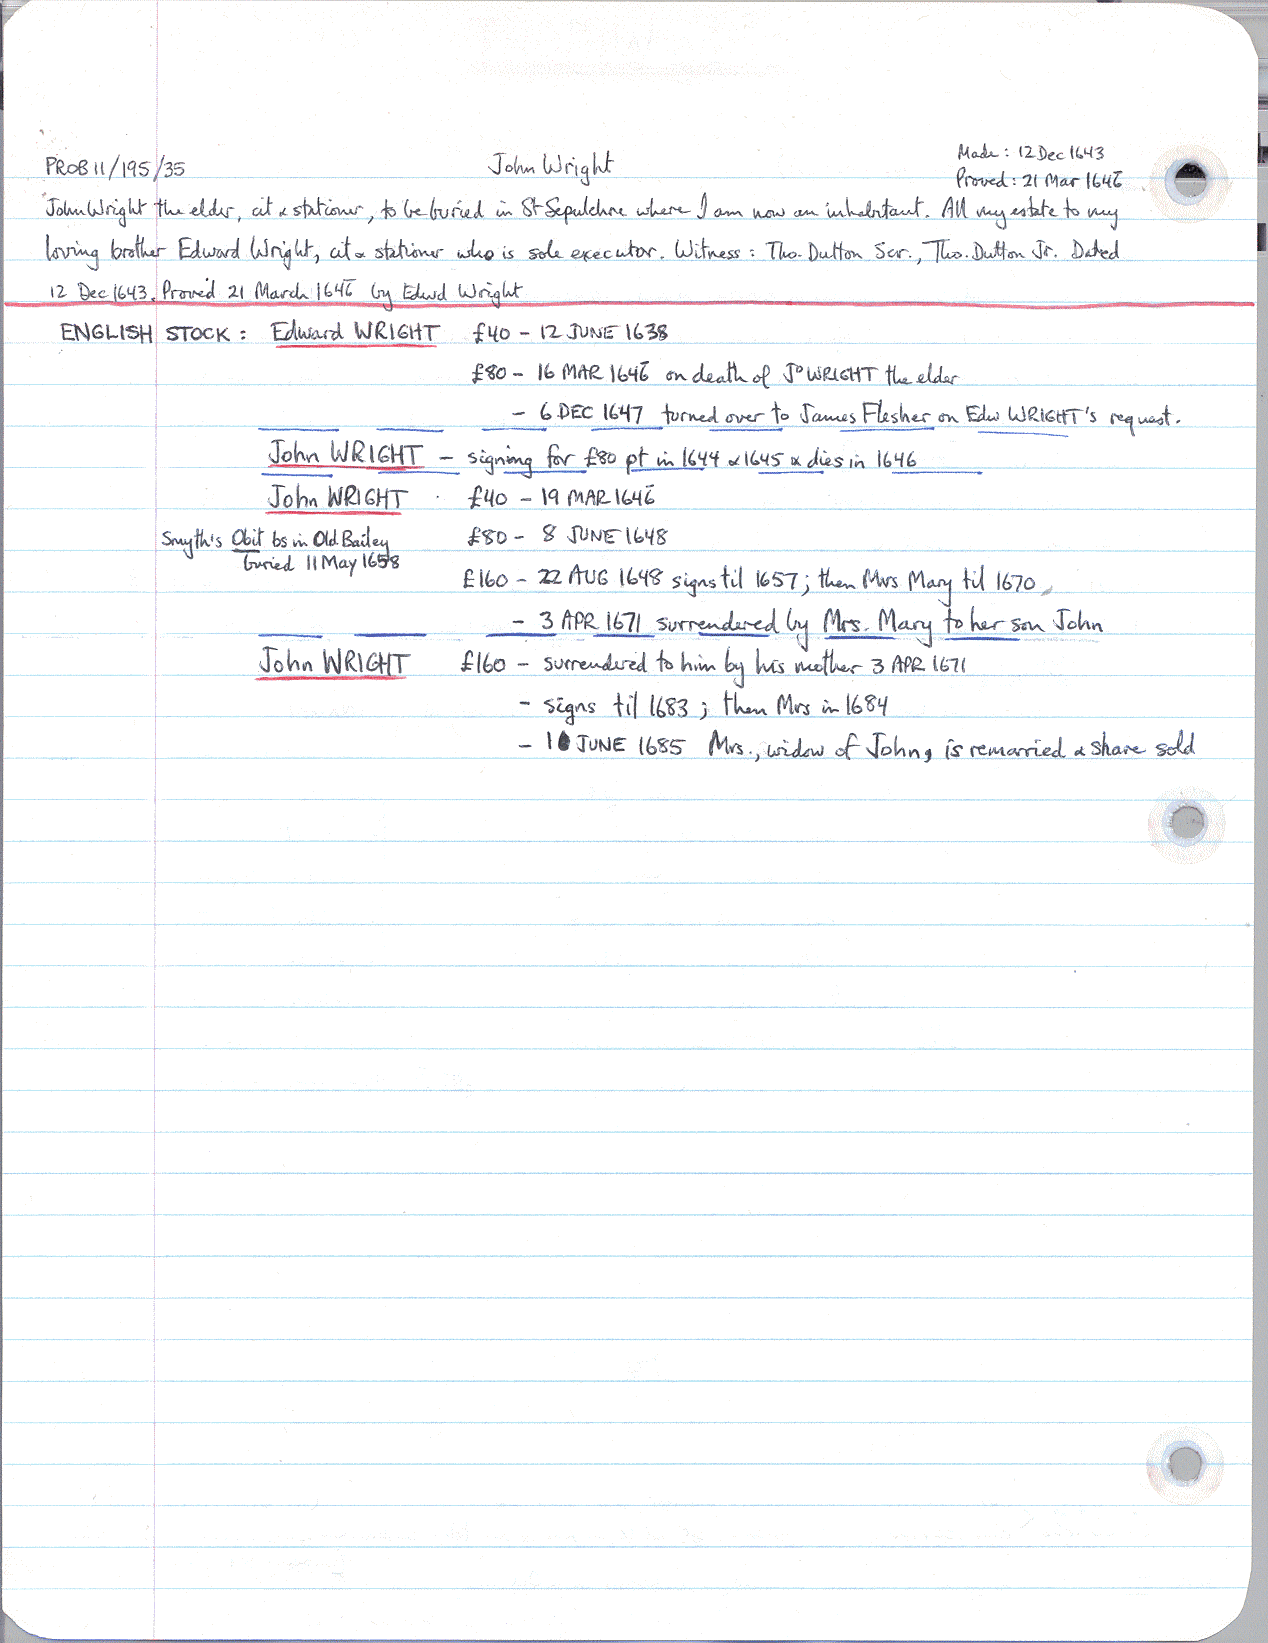 PROB 11/195/35 John Wright Made: 12 Dec 1643
Proved: 21 Mar 1646̄
John Wright the elder, cit & stationer, to be buried in St Sepulchre where I am now an inhabitant. All my estate to my
loving brother Edward Wright, cit & stationer who is sole executor. Witness: Tho. Dutton Scr., Tho. Dutton Jr. Dated
12 Dec 1643. Proved 21 March 1646̄ by Edwd Wright
ENGLISH STOCK: Edward WRIGHT £40 - 12 JUNE 1638
£80 - 16 MAR 1646̄ on death of Jo WRIGHT the elder
- 6 DEC 1647 turned over to James Flesher on Edw WRIGHT's request.
John WRIGHT - signing for £80 pt in 1644 & 1645 & dies in 1646
John WRIGHT £40 - 19 MAR 1646̄
Smyth's Obit bs in Old Bailey £80 - 8 JUNE 1648
buried 11 May 1658
£160 - 22 AUG 1648 signs til 1657; then Mrs Mary til 1670
- 3 APR 1671 surrendered by Mrs. Mary to her son John
John WRIGHT £160 - surrendered to him by his mother 3 APR 1671
- signs til 1683; then Mrs in 1684
- 1 JUNE 1685 Mrs., widow of John, is remarried & share sold